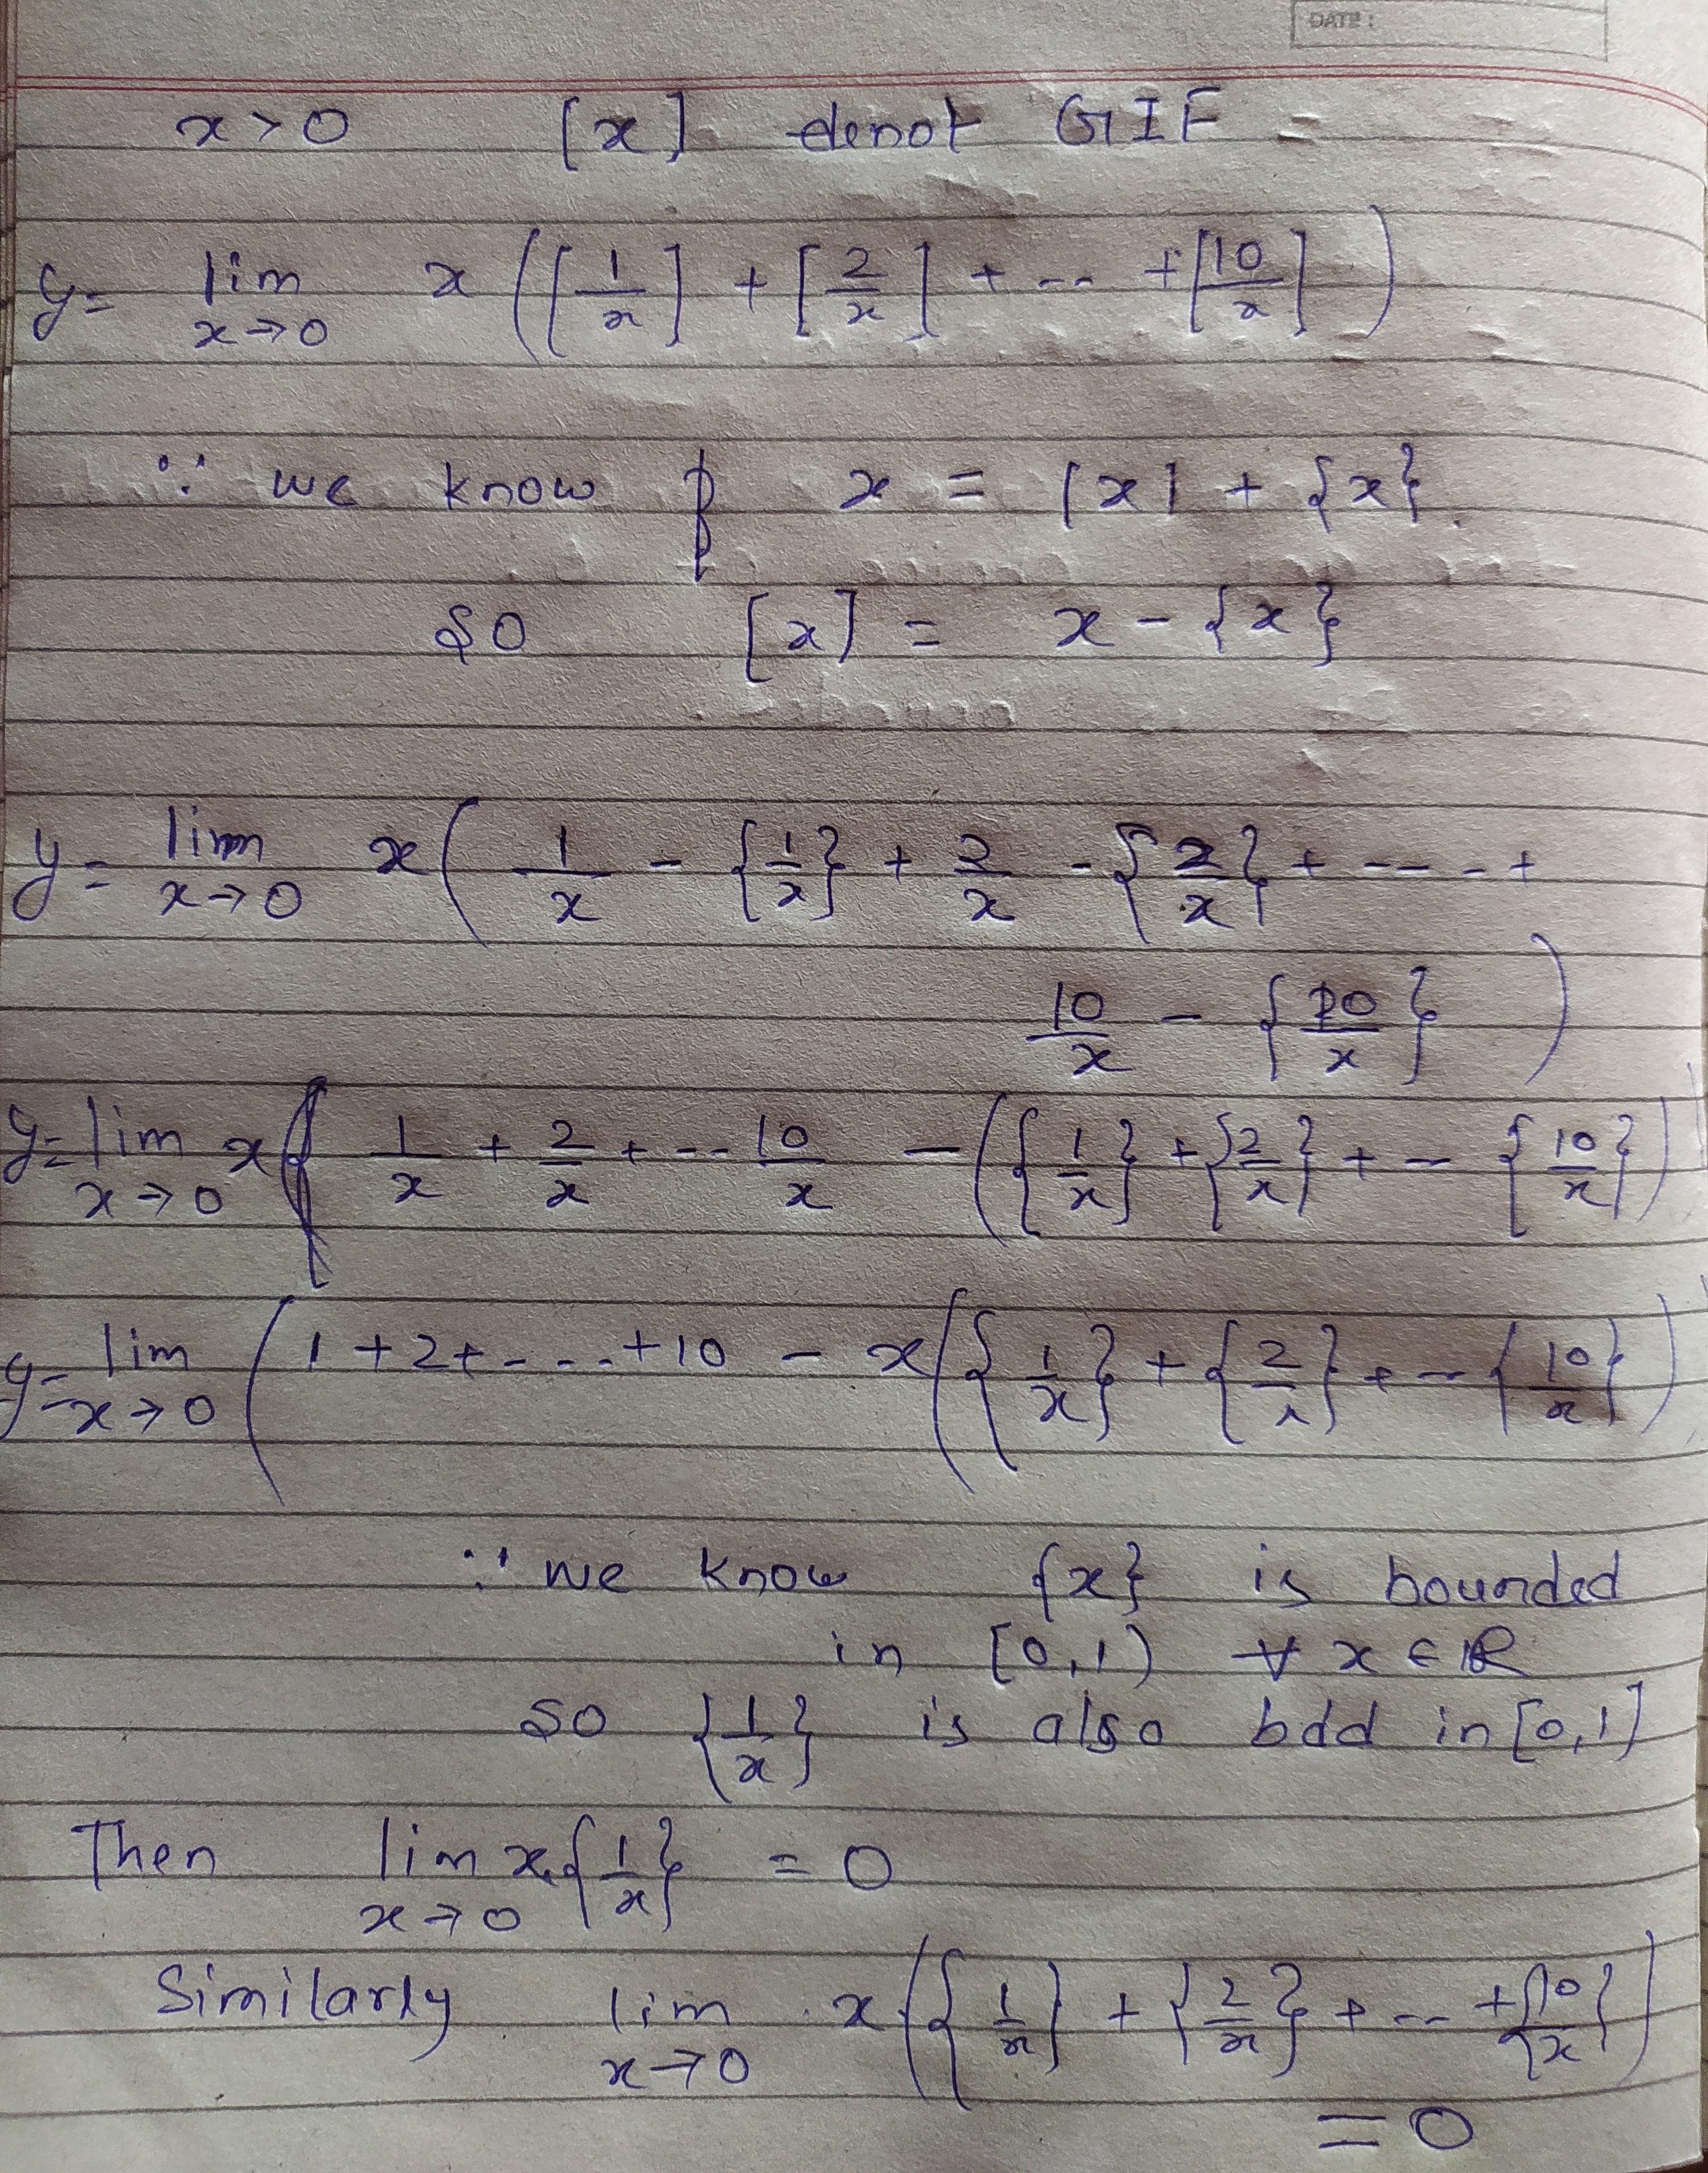 DATE :
x > 0 [x] denot GIF =
y = lim x→0 x ([1/x] + [2/x] + -- + [10/x])
∵ we know x = [x] + {x}.
so [x] = x - {x}
y = lim x→0 x( 1/x - {1/x} + 2/x - {2/x} + ---- +
10/x - {10/x} )
y = lim x→0 x( 1/x + 2/x + -- 10/x - ({1/x} + {2/x} + -- {10/x})
y = lim x→0 ( 1 + 2 + - - .. + 10 - x({1/x} + {2/x} + -- {10/x})
∵ we know {x} is bounded
in [0,1) ∀ x ∈ R
so {1/x} is also bdd in [0,1]
Then lim x→0 x.{1/x} = 0
Similarly lim x→0 x({1/x} + {2/x} + -- + {10/x})
= 0